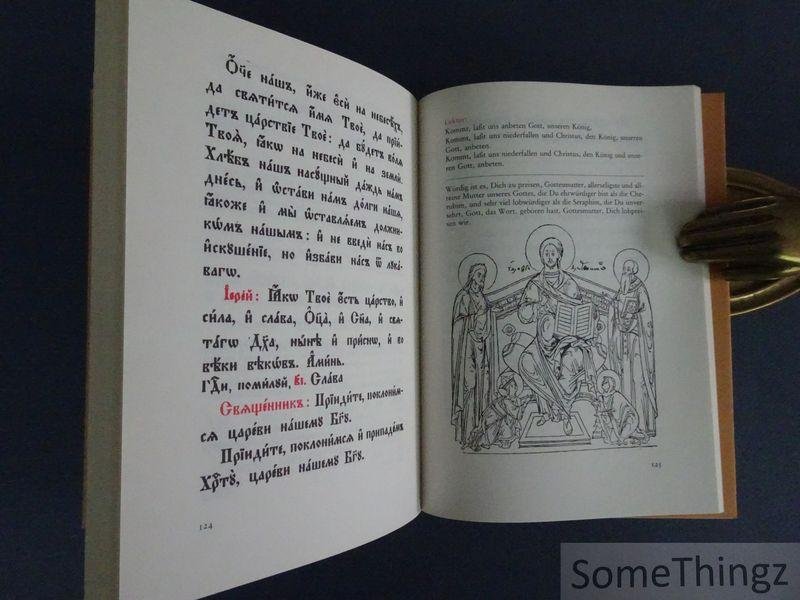 Ѻ҆́ч҃е на́шъ, и҆́же є҆сѝ на небесѣ́хъ,
да свѧти́тсѧ и҆́мѧ Твоѐ, да прїи́-
детъ ца́рствїе Твоѐ: да бꙋ́детъ во́лѧ
Твоѧ̀, ꙗ҆́кѡ на небесѝ и҆ на землѝ.
Хлѣ́бъ на́шъ насꙋ́щный да́ждь на́мъ
дне́сь, и҆ ѡ҆ста́ви на́мъ до́лги на́шѧ,
ꙗ҆́коже и҆ мы̀ ѡ҆ставлѧ́емъ должни-
кѡ́мъ на́шымъ: и҆ не введѝ на́съ во
и҆скꙋше́нїе, но и҆зба́ви на́съ ѿ лꙋка́-
вагѡ.
І҆ере́й: Ꙗ҆́кѡ Твоѐ є҆́сть ца́рство, и҆
си́ла, и҆ сла́ва, Ѻ҆ц҃а̀, и҆ Сн҃а, и҆ свѧ-
та́гѡ Дх҃а, ны́нѣ и҆ при́снѡ, и҆ во
вѣ́ки вѣкѡ́въ. А҆ми́нь.
Гд҇и, поми́лꙋй, в҃і. Сла́ва
Свѧще́нникъ: Прїиди́те, поклони́м-
сѧ царе́ви на́шемꙋ Бг҃ꙋ.
Прїиди́те, поклони́мсѧ и҆ припаде́мъ
Хрⷭ҇тꙋ̀, царе́ви на́шемꙋ Бг҃ꙋ.
124
Lektor:
Kommt, laßt uns anbeten Gott, unseren König,
Kommt, laßt uns niederfallen und Christus, den König, unseren
Gott, anbeten.
Kommt, laßt uns niederfallen und Christus, den König und unse-
ren Gott, anbeten.
Würdig ist es, Dich zu preisen, Gottesmutter, allerseligste und all-
reine Mutter unseres Gottes, die Du ehrwürdiger bist als die Che-
rubim, und sehr viel lobwürdiger als die Seraphim, die Du unver-
sehrt, Gott, das Wort, geboren hast, Gottesmutter, Dich lobprei-
sen wir.
125
SomeThingz